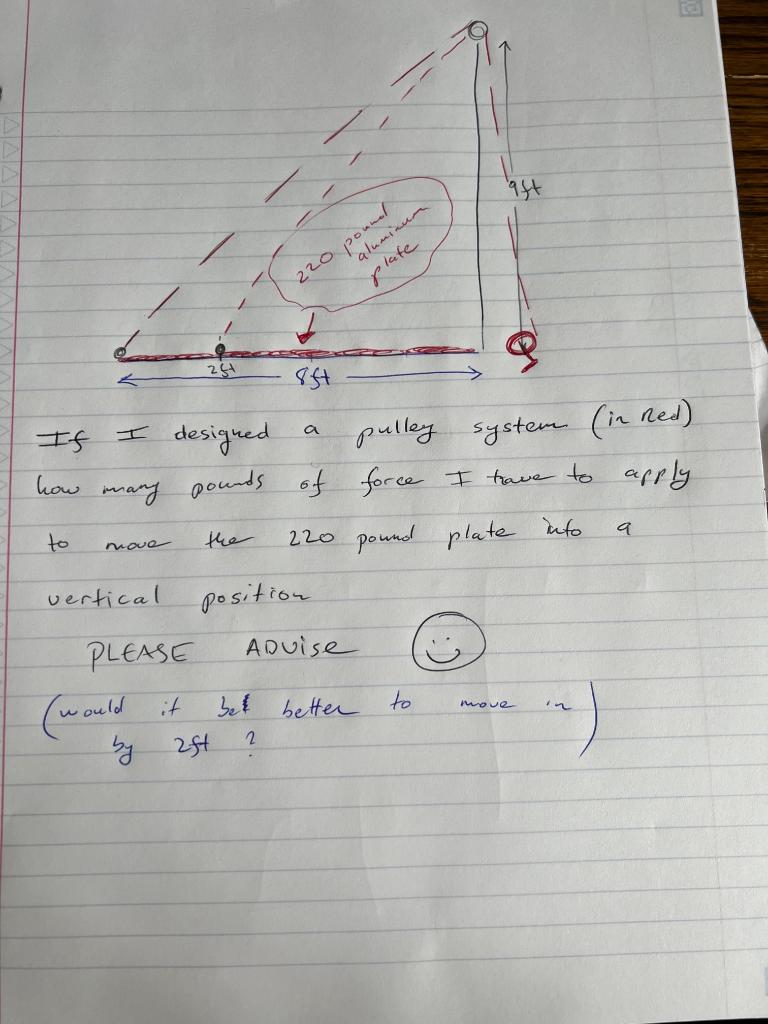 9ft
220 pound
aluminum
plate
2ft
8ft
If I designed a pulley system (in Red)
how many pounds of force I have to apply
to move the 220 pound plate into a
vertical position
PLEASE ADVISE
(would it be better to move in
by 2ft ?)